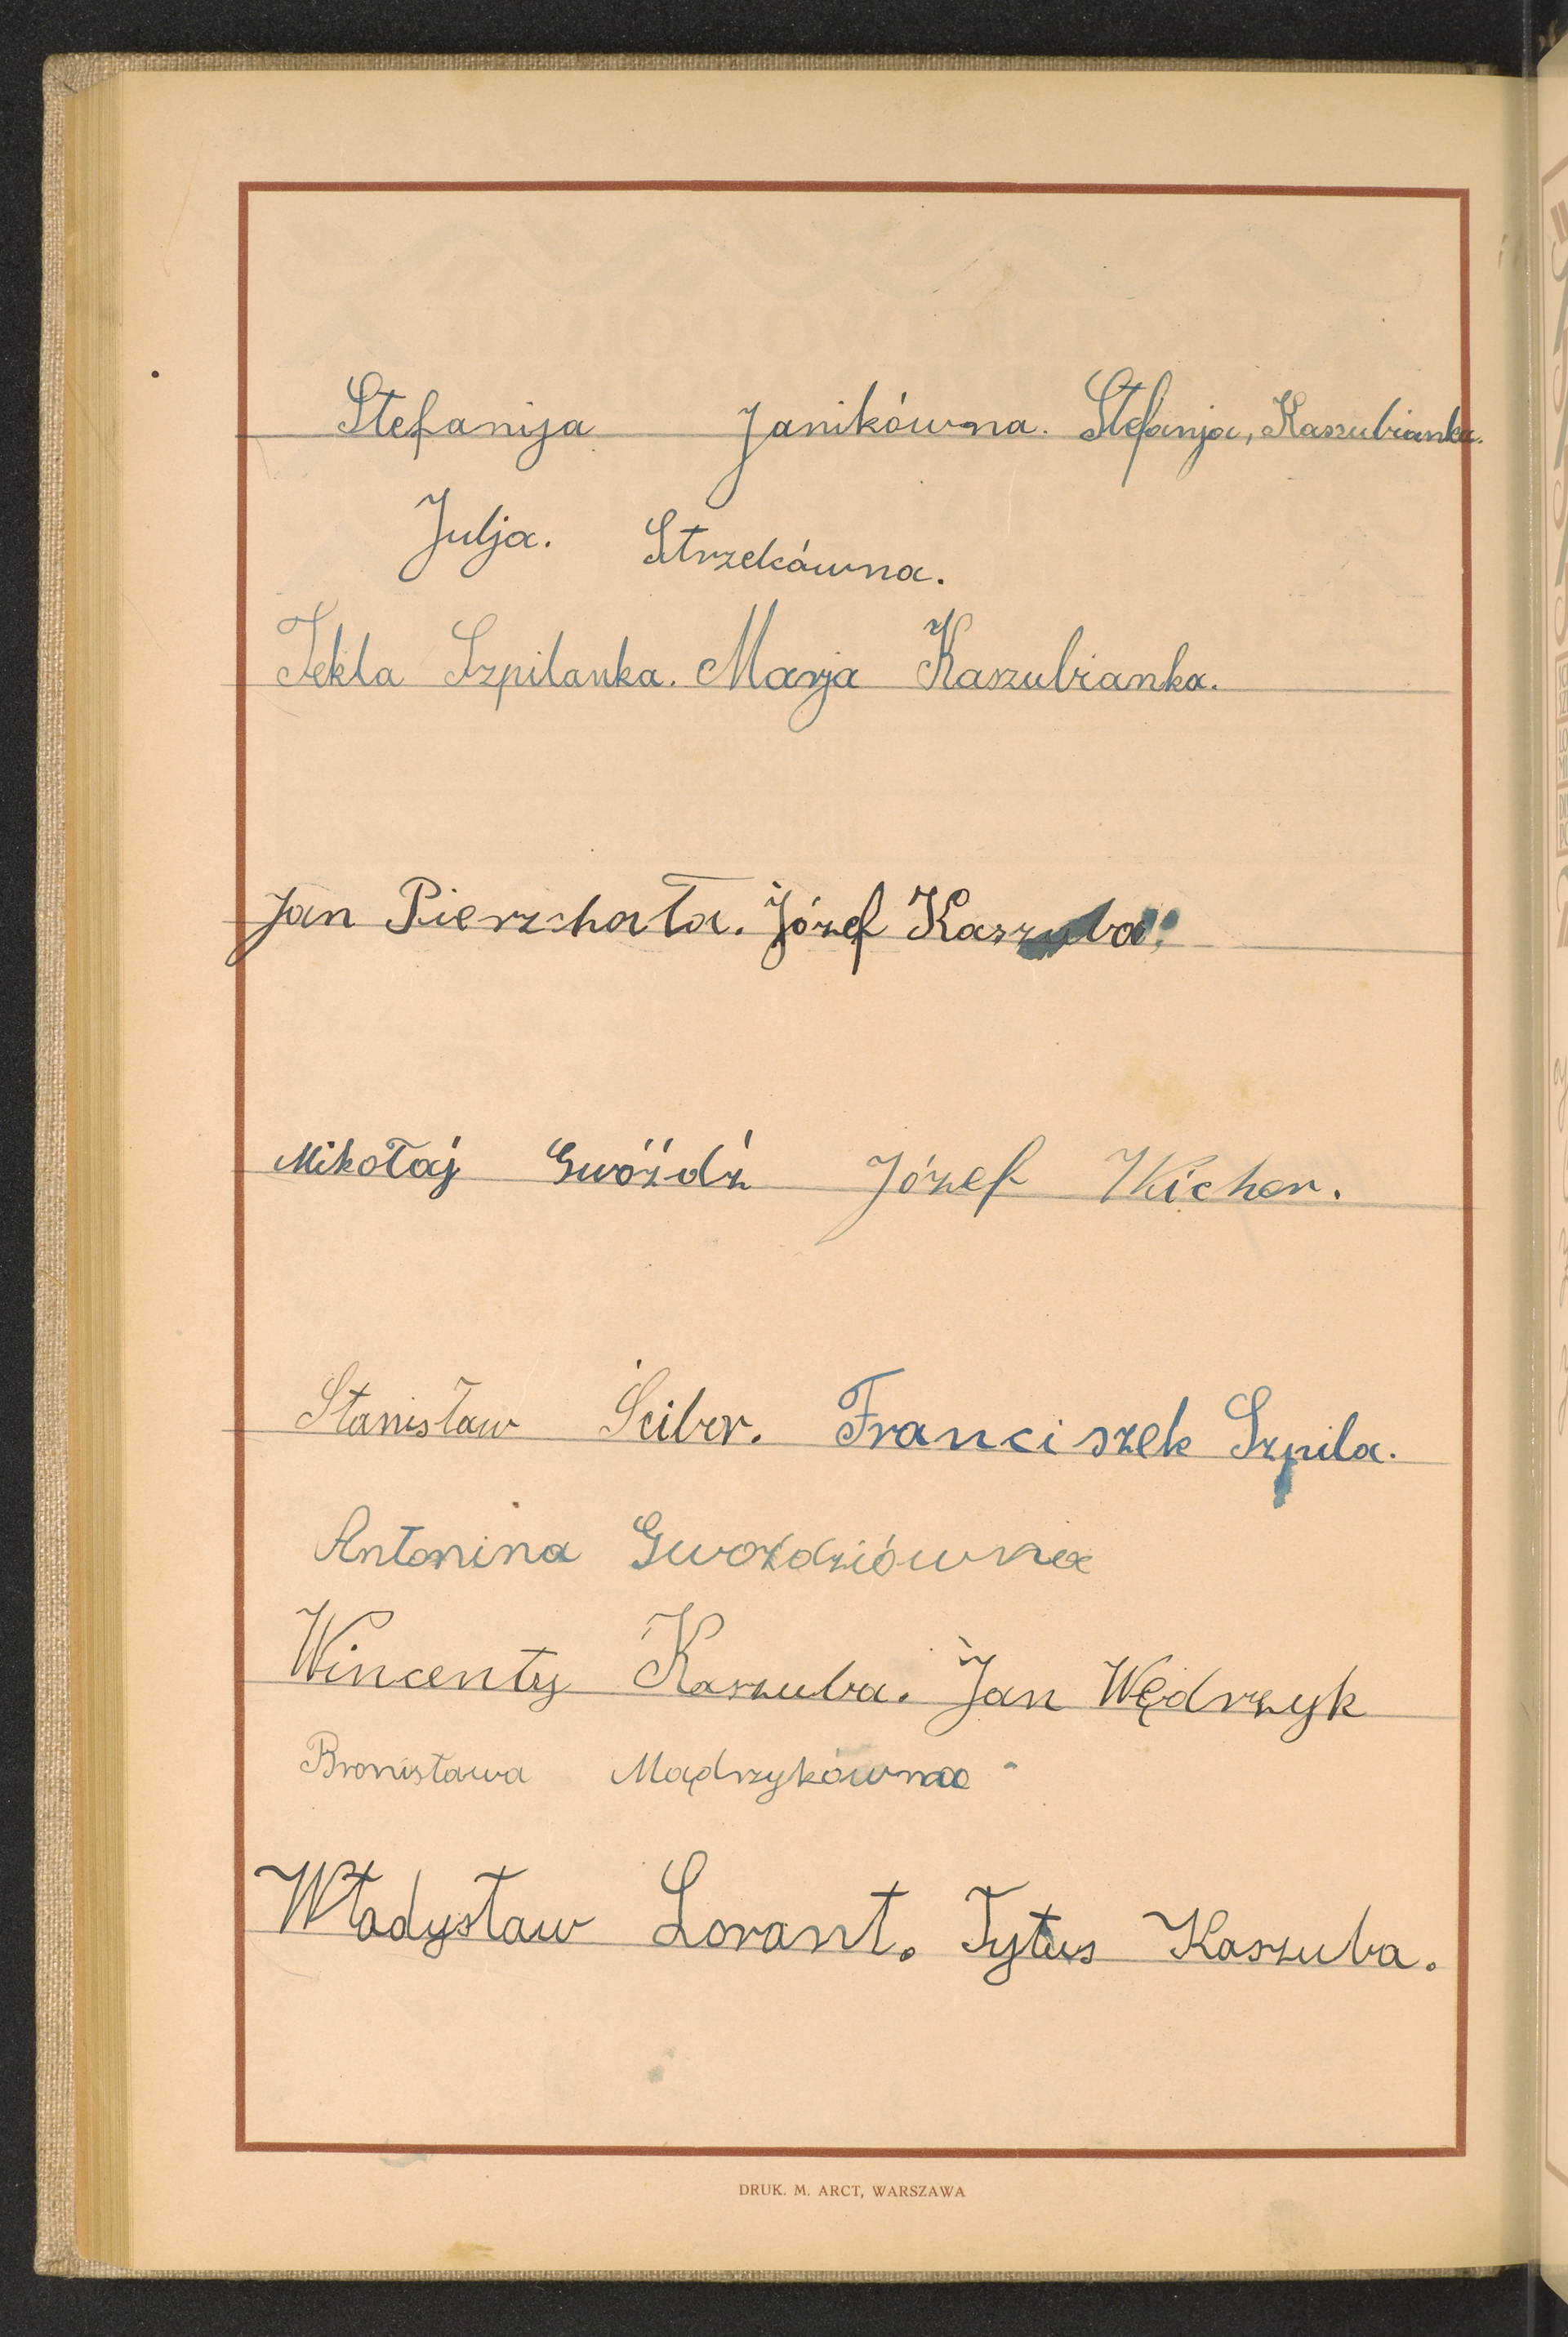 Stefanija Janikówna. Stefanja, Kaszubianka.
Julja. Strzelcówna.
Tekla Szpilanka. Marja Kaszubianka.
Jan Pierzchała. Józef Kaszuba.
Mikołaj Gwóźdź Józef Wicher.
Stanisław Ścibor. Franciszek Szpila.
Antonina Gwoździówna
Wincenty Kaszuba. Jan Wędrzyk
Bronisława Mądrzykówna
Władysław Lorant. Tytus Kaszuba.
DRUK. M. ARCT, WARSZAWA